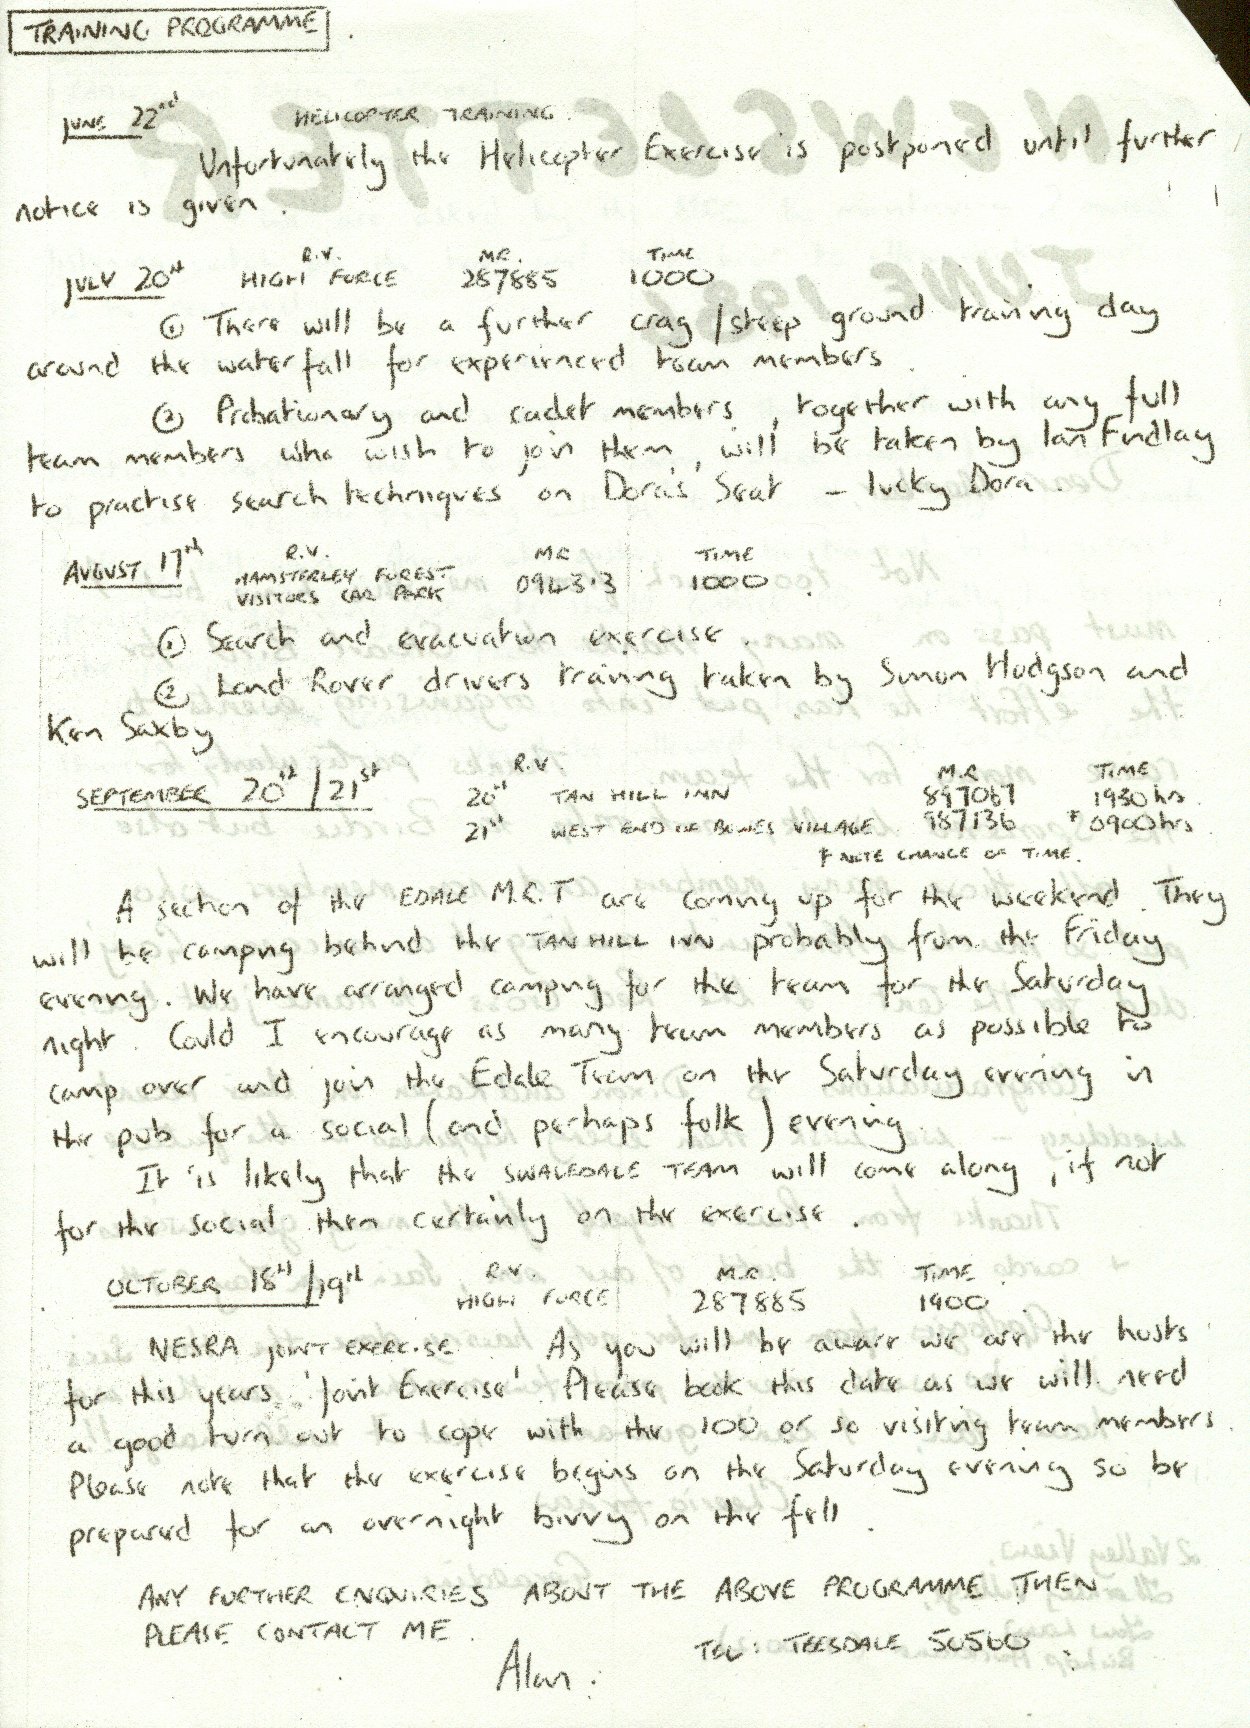 TRAINING PROGRAMME
JUNE 22nd HELICOPTER TRAINING.
Unfortunately the Helicopter Exercise is postponed until further
notice is given.
R.V. M.R. TIME
JULY 20th HIGH FORCE 287885 1000
① There will be a further crag/steep ground training day
around the waterfall for experienced team members.
② Probationary and cadet members, together with any full
team members who wish to join them, will be taken by Ian Findlay
to practise search techniques on Dora's Seat - lucky Dora.
R.V. M.R TIME
AUGUST 17th HAMSTERLEY FOREST 1000.
VISITORS CAR PARK
① Search and evacuation exercise.
② Land Rover drivers training taken by Simon Hodgson and
Ken Saxby
R.V. M.R TIME
SEPTEMBER 20th/21st 20th TAN HILL INN 897067 1930hrs.
21st WEST END OF BOWES VILLAGE. 987136 * 0900hrs.
* NOTE CHANGE OF TIME.
A section of the EDALE M.R.T are coming up for the weekend. They
will be camping behind the TAN HILL INN probably from the Friday
evening. We have arranged camping for the team for the Saturday
night. Could I encourage as many team members as possible to
camp over and join the Edale Team on the Saturday evening in
the pub for a social (and perhaps folk) evening.
It is likely that the SWALEDALE TEAM will come along, if not
for the social then certainly on the exercise.
R.V. M.R. TIME
OCTOBER 18th/19th HIGH FORCE 287885 1400.
NESRA JOINT EXERCISE. As you will be aware we are the hosts
for this years 'Joint Exercise'. Please book this date as we will need
a good turn out to cope with the 100 or so visiting team members.
Please note that the exercise begins on the Saturday evening so be
prepared for an overnight bivvy on the fell.
ANY FURTHER ENQUIRIES ABOUT THE ABOVE PROGRAMME THEN
PLEASE CONTACT ME.
Alan. TEL: TEESDALE 50560.